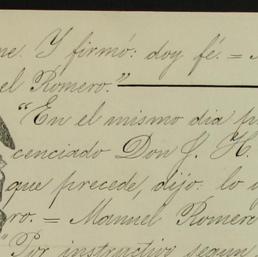 ne. Y firmó: doy fé. =
el Romero."
"En el mismo dia h
cenciado Don J. H.
que precede, dijo: lo
ro. = Manuel Romero
"Por instructivo segun